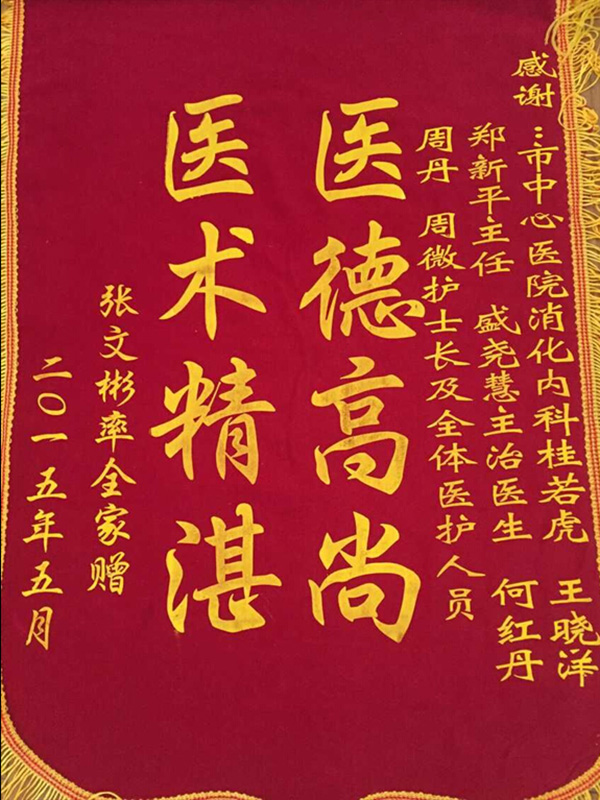 感谢：市中心医院消化内科桂若虎 王晓洋
郑新平主任 盛尧慧主治医生 何红丹
周丹 周微护士长及全体医护人员
医德高尚
医术精湛
张文彬率全家赠
二〇一五年五月